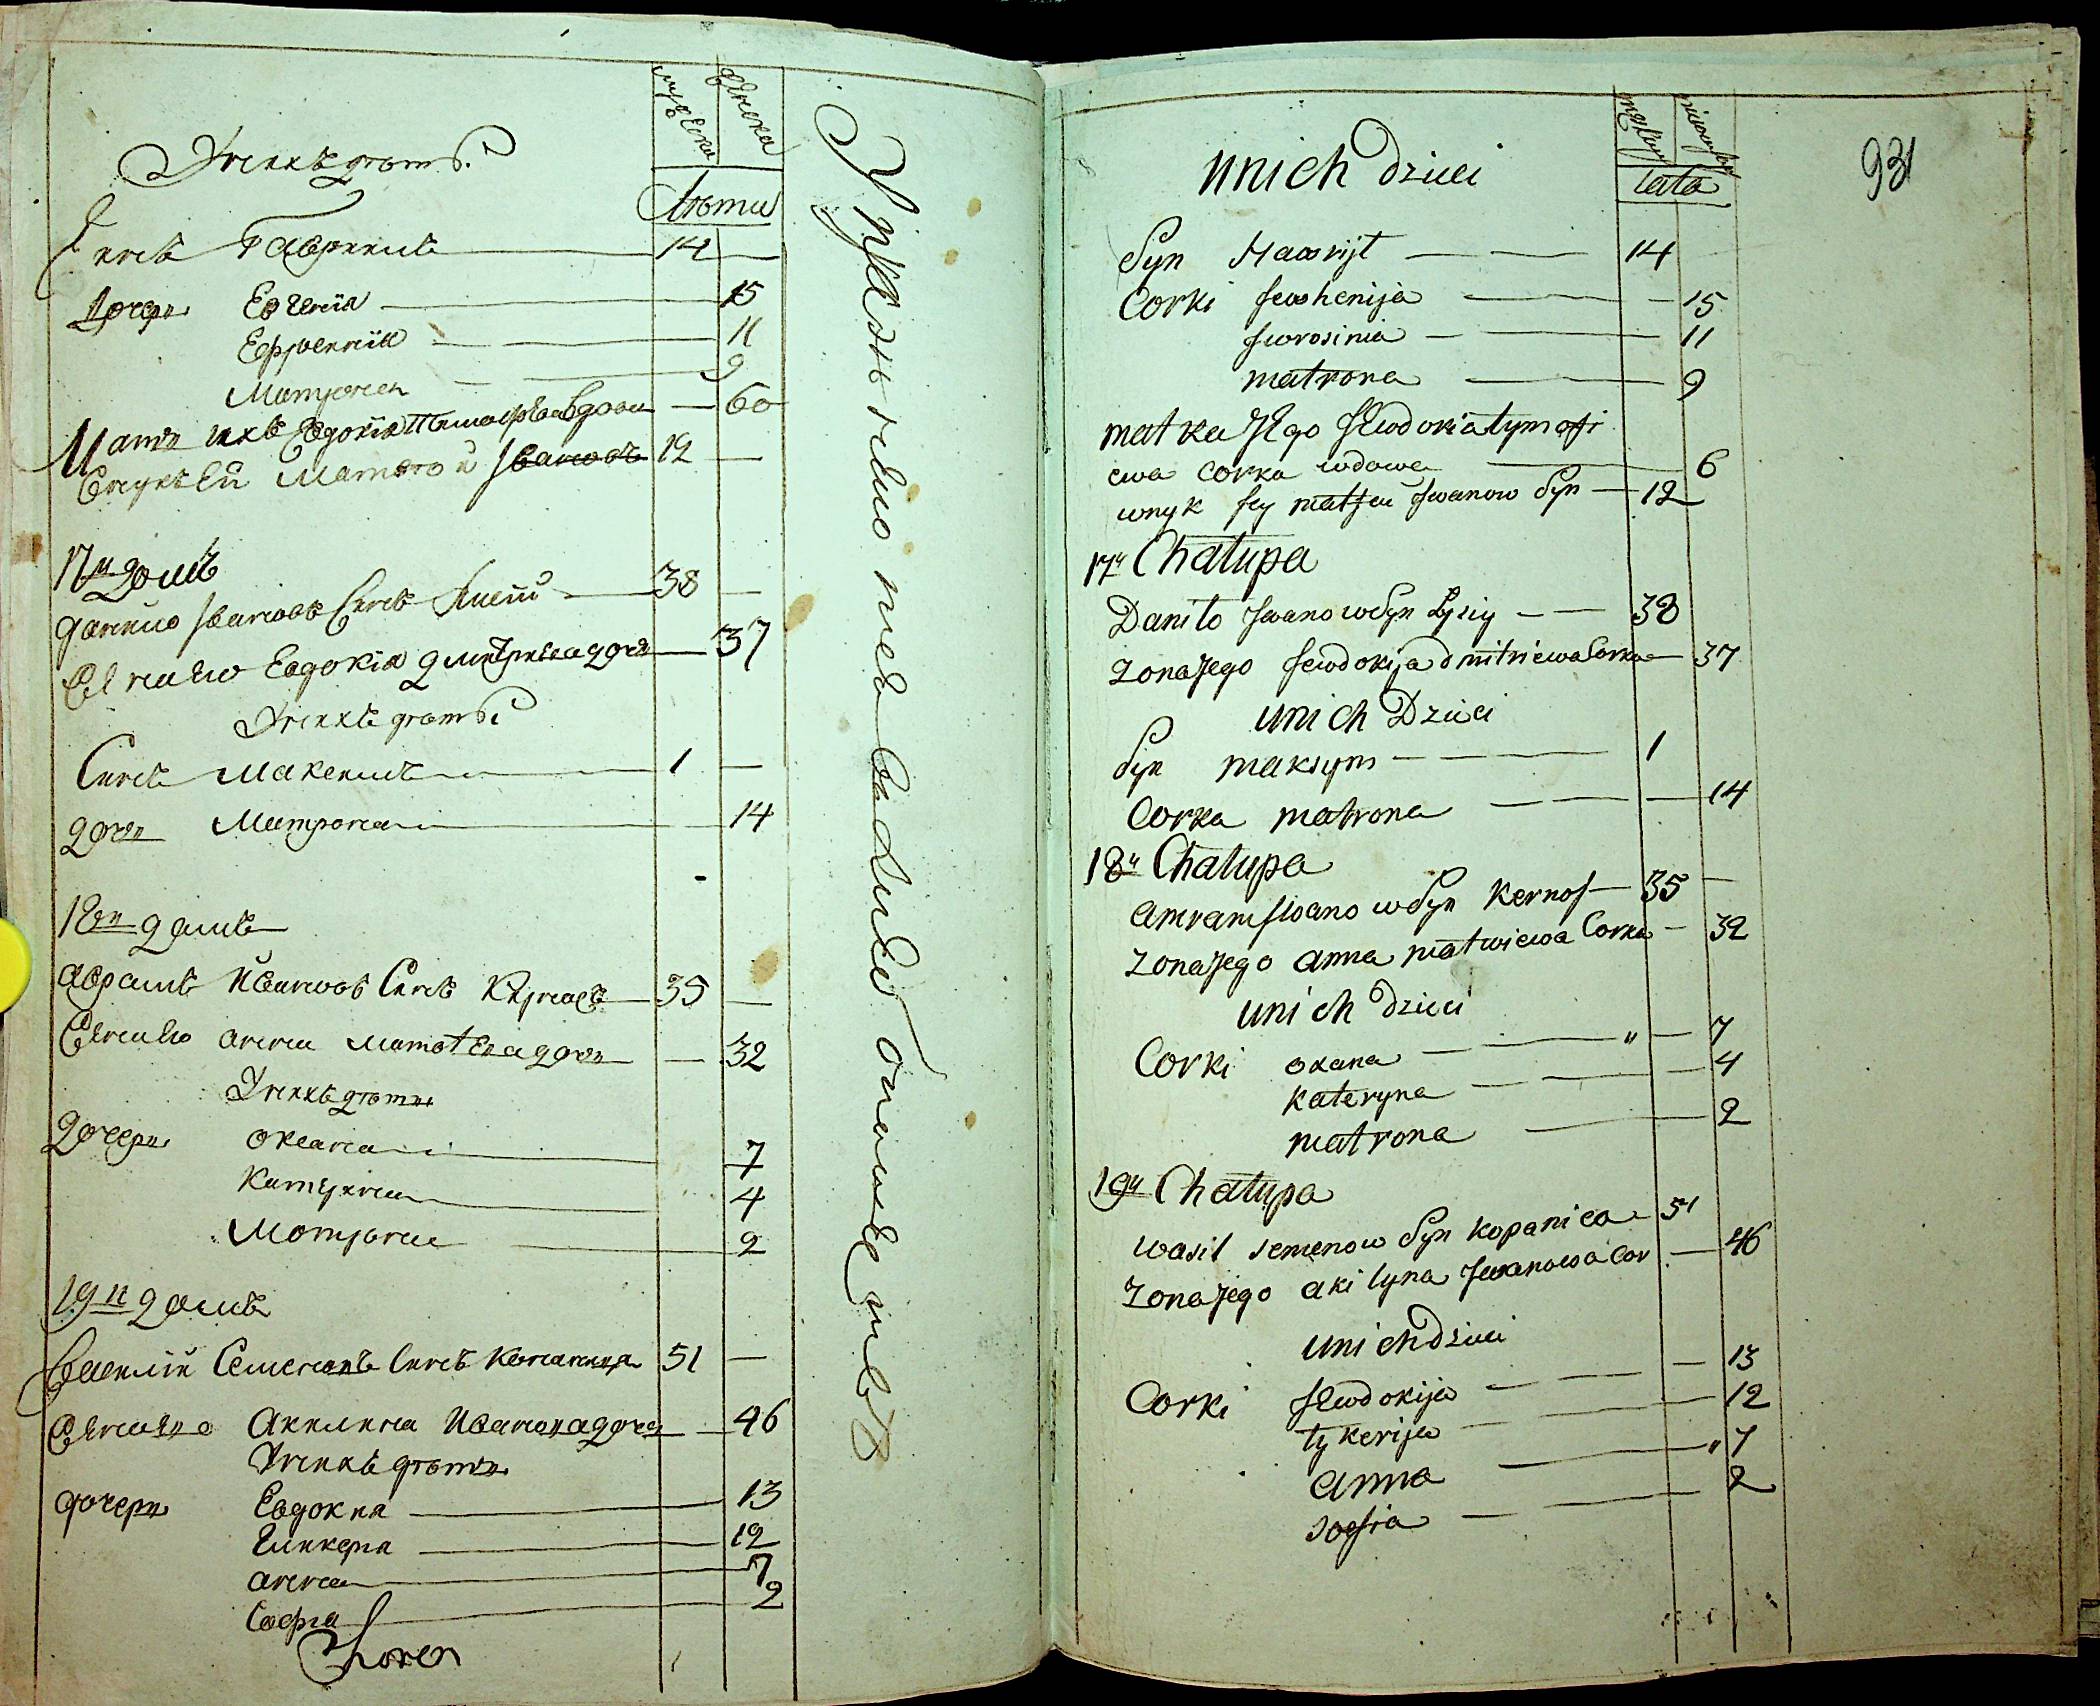 мужеска
женска
У нихъ дети
Лѣты
Синъ Гавриилъ 14
дочери Евгенія 15
Ефросинія 11
Матрона 9
Мать ихъ Евдокія Тимофѣева вдова 60
Внукъ ей Матвѣй Ивановъ 12
17й домъ
Данило Ивановъ Синъ Лисій 38
Его жена Евдокія Дмитриева дочь 37
У нихъ дети
Синъ Максимъ 1
дочь Матрона 14
18й домъ
Аврамъ Ивановъ Синъ Кернось 35
Его жена Анна Матвѣева дочь 32
У нихъ дети
дочери Оксана 7
Катерина 4
Мотрона 2
19й домъ
Василій Семеновъ Синъ Копаница 51
Его жена Акилина Иванова дочь 46
У нихъ дети
дочери Евдокия 13
Гликерия 12
Анна 7
София 2
931
unich dzieci
lata
Syn Hawrijł 14
Corki Jewhenija 15
Jewrosinia 11
matrona 9
matka Jego Jewdokia tymofi
ewa corka wdowa 6
wnyk Jey matfeu Jwanow Syn 12
17y Chałupa
Daniło Jwanow Syn Łysiy 38
zona Jego Jewdokija dmitriewa Corka 37
unich Dzieci
Syn maksym 1
Corka matrona 14
18y Chałupa
amram Jwanow Syn Kernos 35
zona Jego anna matwiewa Corka 32
unich dzieci
Corki oxana 7
kateryna 4
matrona 2
19y Chałupa
wasil semenow Syn kopanica 51
zona Jego akilyna Jwanowa Cor 46
unich dzieci
Corki Jewdokija 13
łykerija 12
anna 7
sofia 2